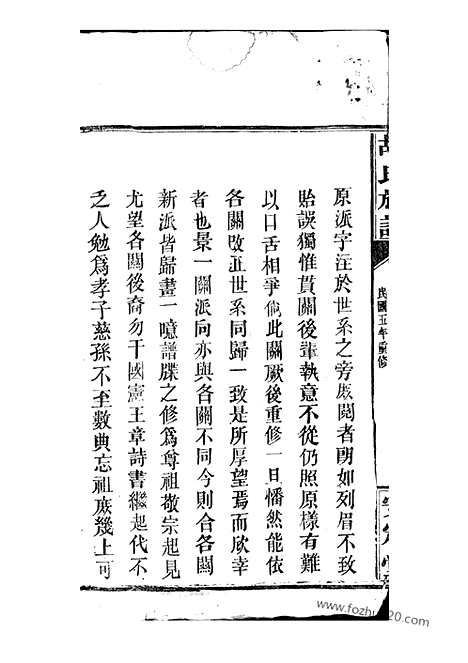 氏族譜
民國五年重修
原派字注於世系之旁㡳閱者朗如列眉不致
貽誤獨惟貫鬮後輩執意不從仍照原樣有難
以口舌相爭倘此鬮厥後重修一旦憣然能依
各鬮改正世系同歸一致是所厚望焉而欣幸
者也景一鬮派向亦與各鬮不同今則合各鬮
新派皆歸畫一噫譜牒之修為尊祖敬宗起見
尤望各鬮後裔勿干國憲王章詩書繼起代不
乏人勉爲孝子慈孫不至數典忘祖庶幾上可
www.fozhu920.com